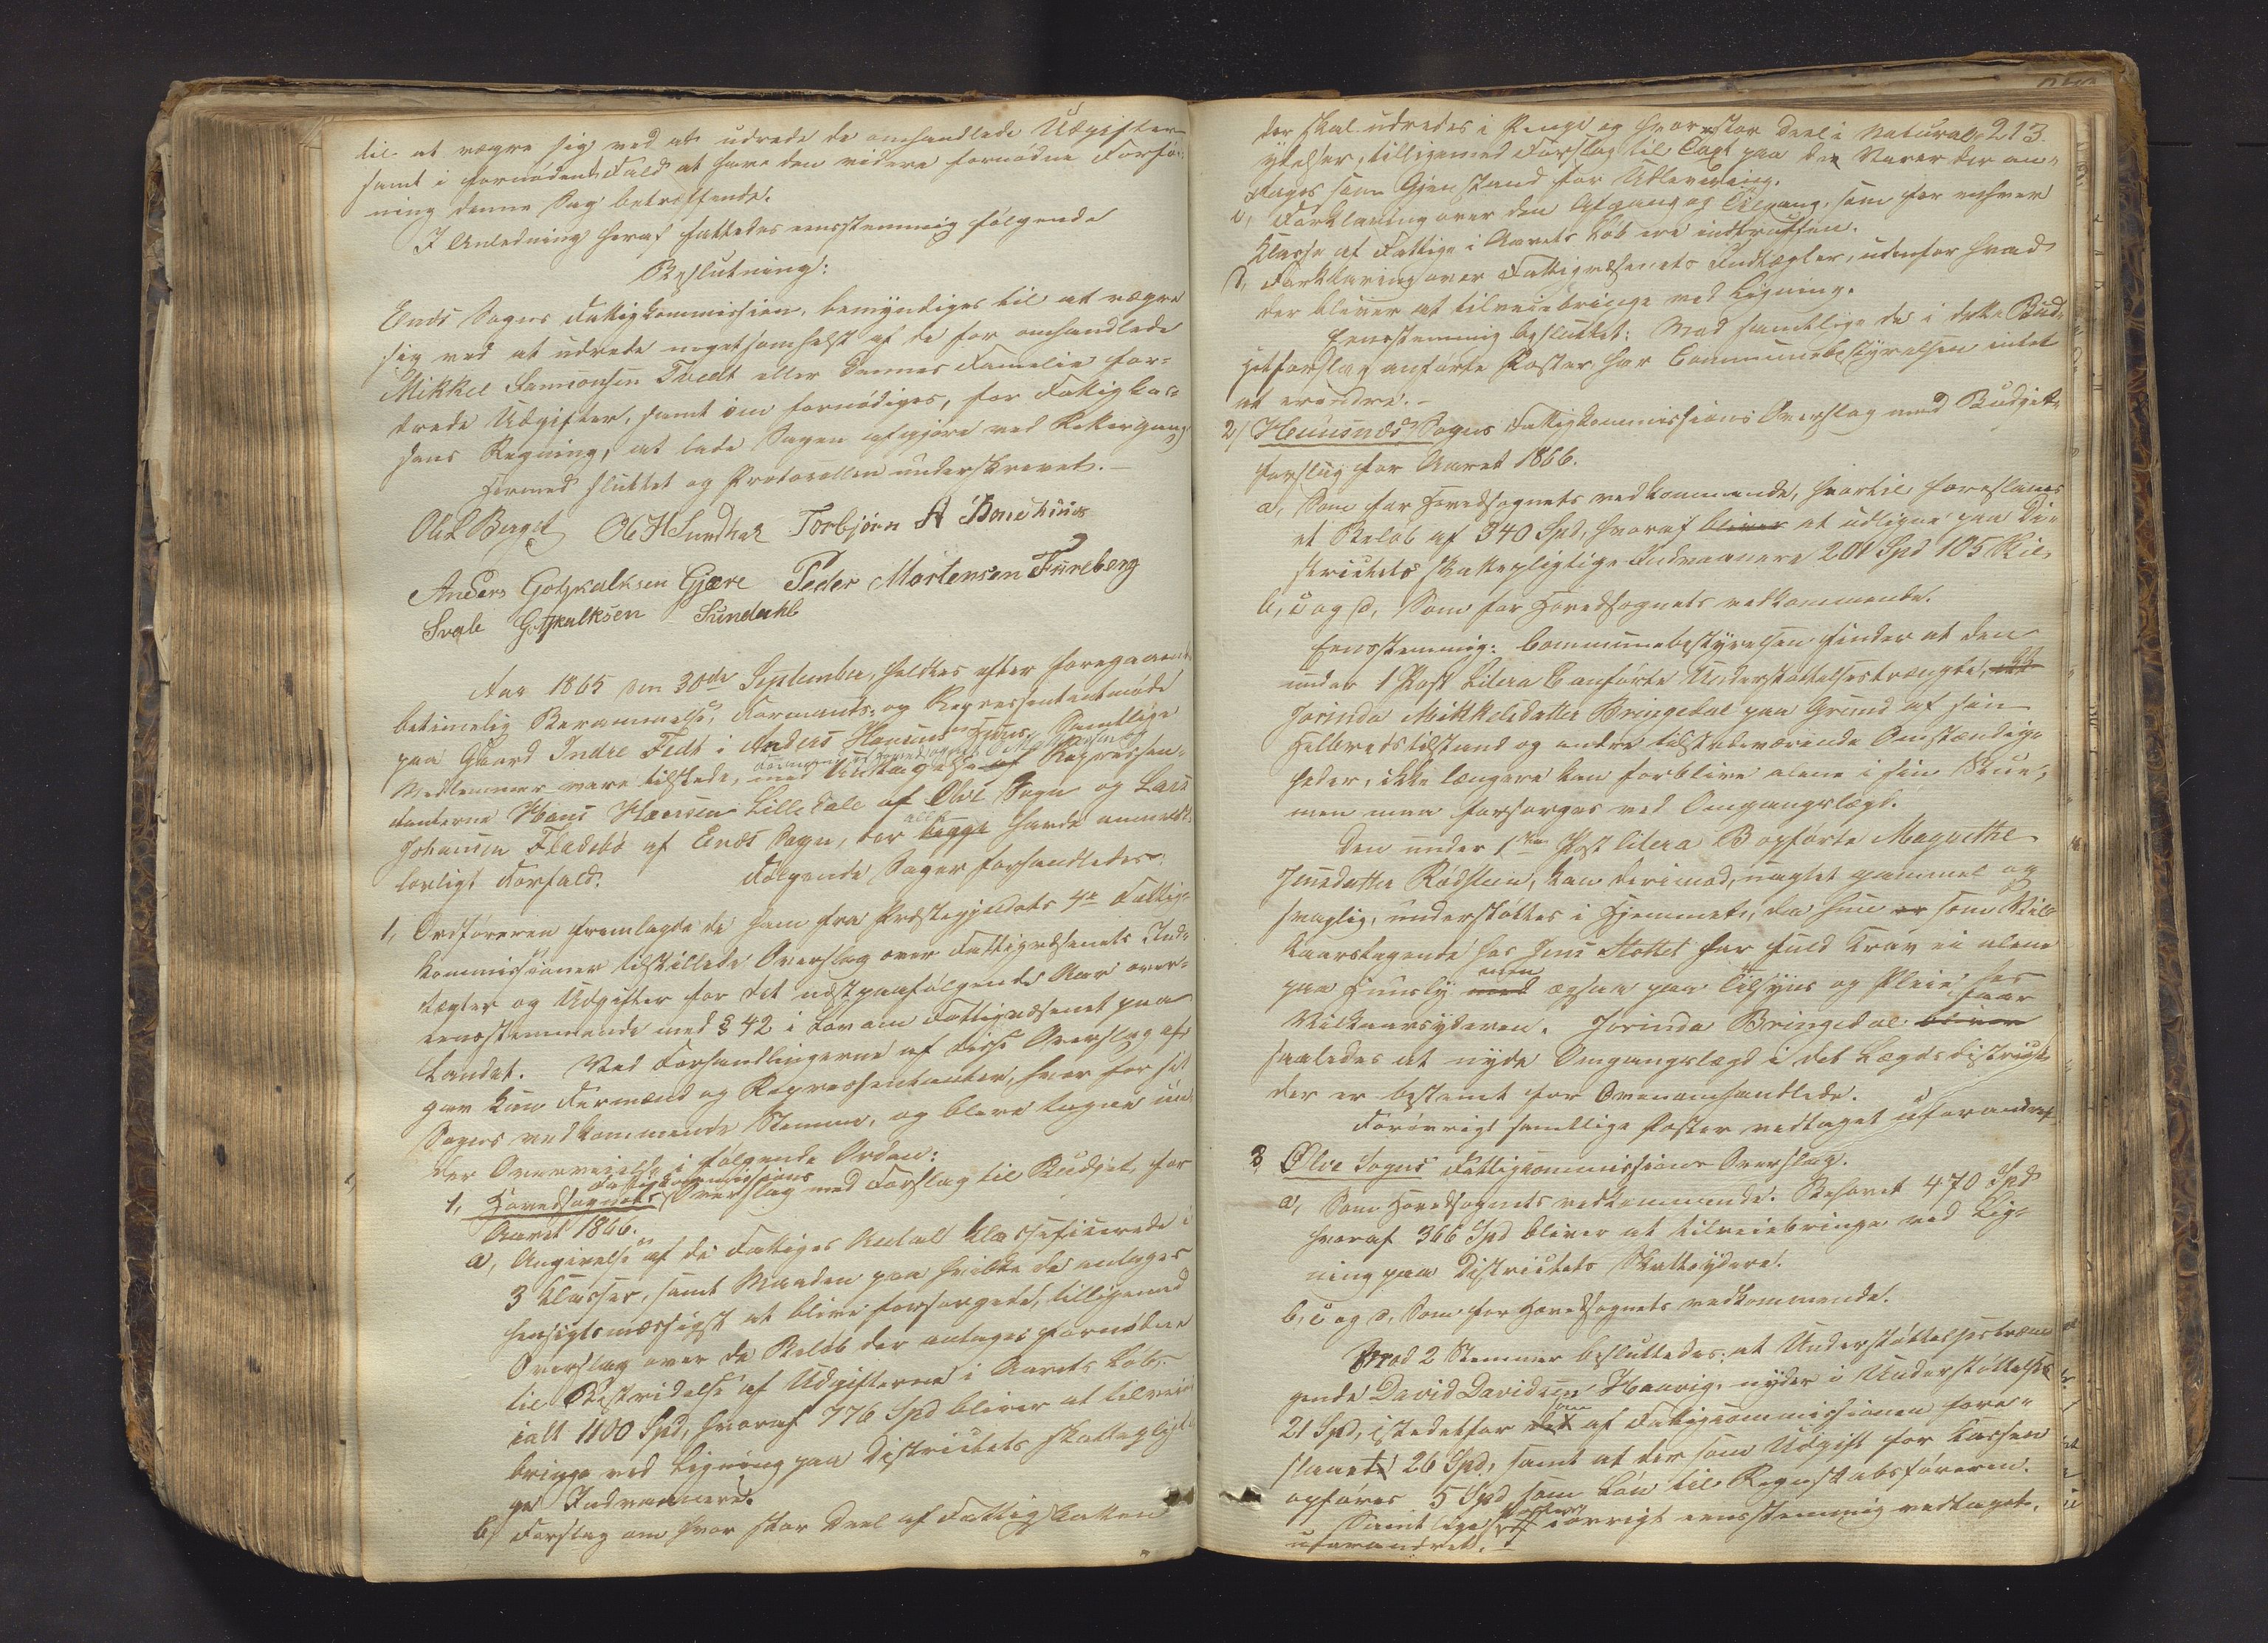 til at vægre sig ved at udrede de omhandlede Udgifter
samt i fornødent Fald at have den videre fornødne Forføi-
ning denne Sag betræffende.
I Anledning heraf fattedes eensstemmig følgende
Beslutning:
Enæs Sogns Fattigkommission, bemyndiges til at vægre
sig ved at udrede nogetsomhelst af de for omhandlede
Mikkel Samsonsen Tvedt eller dennes Familie for-
drede Udgifter, samt om fornødiges, for Fattigkas-
sens Regning, at lade Sagen afgjøre ved Rettergang.
Hermed sluttet og Protocollen underskrevet.-
Ole L Berget Ole H Sundhal Torbjørn A Bonehuus
Anders Gotskalksen Gjære Peder Mortensen Fureberg
Svale Gotskalksen Sundahl
Aar 1865 den 30de September, holdtes efter foregaaende
betimelig Berammelse, Formands- og Repræsentantmøde
paa Gaard Indre Fedt i Anders Hansens Huus. Samtlige
Medlemmer vare tilstede, med Undtagelse af Repræsen-
tanterne Hans Hansen Lilledale af Ølve Sogn og Lars
Johannesen Fladebø af Enæs Sogn, der alle begge havde anmeldt
lovligt Forfald. Følgende Sager forhandledes:
1, Ordføreren fremlagde de ham fra Præstegjeldets 4re Fattig-
kommissioner tilstillede Overslag over Fattigvæsenets Ind-
tægter og Udgifter for det næstpaafølgende Aar over-
eensstemmende med § 42 i Lov om Fattigvæsenet paa
Landet. Ved Forhandlingerne af disse Overslag af-
gav kun Formænd og Repræsentanter, hver for sit
Sogns vedkommende Stemme, og bleve tagne un-
der Overveielse i følgende Orden:
1, Hovedsognets Fattigkommissions Overslag med Forslag til Budjet, for
Aaret 1866.
a, Angivelse af de Fattiges Antal klassificerede i
3 Klasser, samt Maaden paa hvilke de antages
hensigtsmæssigst at blive forsørgede, tilligemed
Overslag over de Beløb der antages fornødne
til Bestridelse af Udgifterne i Aarets Løb,
ialt 1100 Spd, hvoraf 776 Spd bliver at tilveie
bringe ved Ligning paa Districtets skattepligti-
ge Indvaanere.
b, Forslag om hvor stor Deel af Fattigskatten
213
der skal udredes i Penge og hvor stor Deel i Natural-
ydelser, tilligemed Forslag til Taxt paa de Varer der an-
tages som Gjenstand for Udlevering.
c, Forklaring over den Afgang og Tilgang, som for enhver
Klasse af Fattige i Aarets Løb ere indtruffen.
d, Forklaring over Fattigvæsenets Indtægter, udenfor hvad
der bliver at tilveiebringe ved Ligning.
Eensstemmig besluttet: Mod samtlige de i dette Bud-
jetforslag anførte Poster har Communebestyrelsen intet
at erindre.-
2, Huusnæs Sogns Fattigkommissions Overslag med Budjet-
forslag for Aaret 1866.
a, Som for Hovedsognets vedkommende, hvortil foreslaaes
et Beløb af 340 Spd, hvoraf bliver at udligne paa Di-
strictets skattepligtige Indvaanere 201 Spd 105 Skil.
b, c og d, Som for Hovedsognets vedkommende.
Eensstemmig: Communebestyrelsen finder at den
under 1 Post Litera B anførte Understøttelsestrængte,
Jorinda Mikkelsdatter Bringedal paa Grund af sin
Helbredstilstand og andre tilstedeværende Omstændig-
heder, ikke længere kan forblive alene i sin Stue,
men maa forsørges ved Omgangslægd.
Den under 1ste Post litera B opførte Magrethe
Jensdatter Rødsteen, kan derimod, uagtet gammel og
svagelig, understøttes i Hjemmet, da hun er som Vil-
kaarstagende hos Jens Stottet har fuld Krav ei alene
paa Huusly men ogsaa paa Tilsyn og Pleie hos
Vilkaarsyderen. Jorinda Bringedal bliver faar
saaledes at nyde Omgangslægd i det Lægdsdistrict
der er bestemt for Ovenomhandlede.
Forøvrigt samtlige Poster vedtaget uforandret
3, Ølve Sogns Fattigcommissions Overslag.
a, Som Hovedsognets vedkommende. Behovet 470 Spd
hvoraf 366 Spd bliver at tilveiebringe ved Lig-
ning paa Districtets Skatteydere.
b, c og d, Som for Hovedsognets vedkommende.
Mod 2 Stemmer besluttedes: at Understøttelsestræn-
gende David Davidsen Haavig, nyder i Understøttelse
21 Spd, istedetfor som af Fattigcommissionen fore-
slaaet 26 Spd, samt at der som Udgift for Kassen
opføres 5 Spd som Løn til Regnskabsføreren.
Samtlige Poster iøvrigt eensstemmig vedtaget.
uforandret.